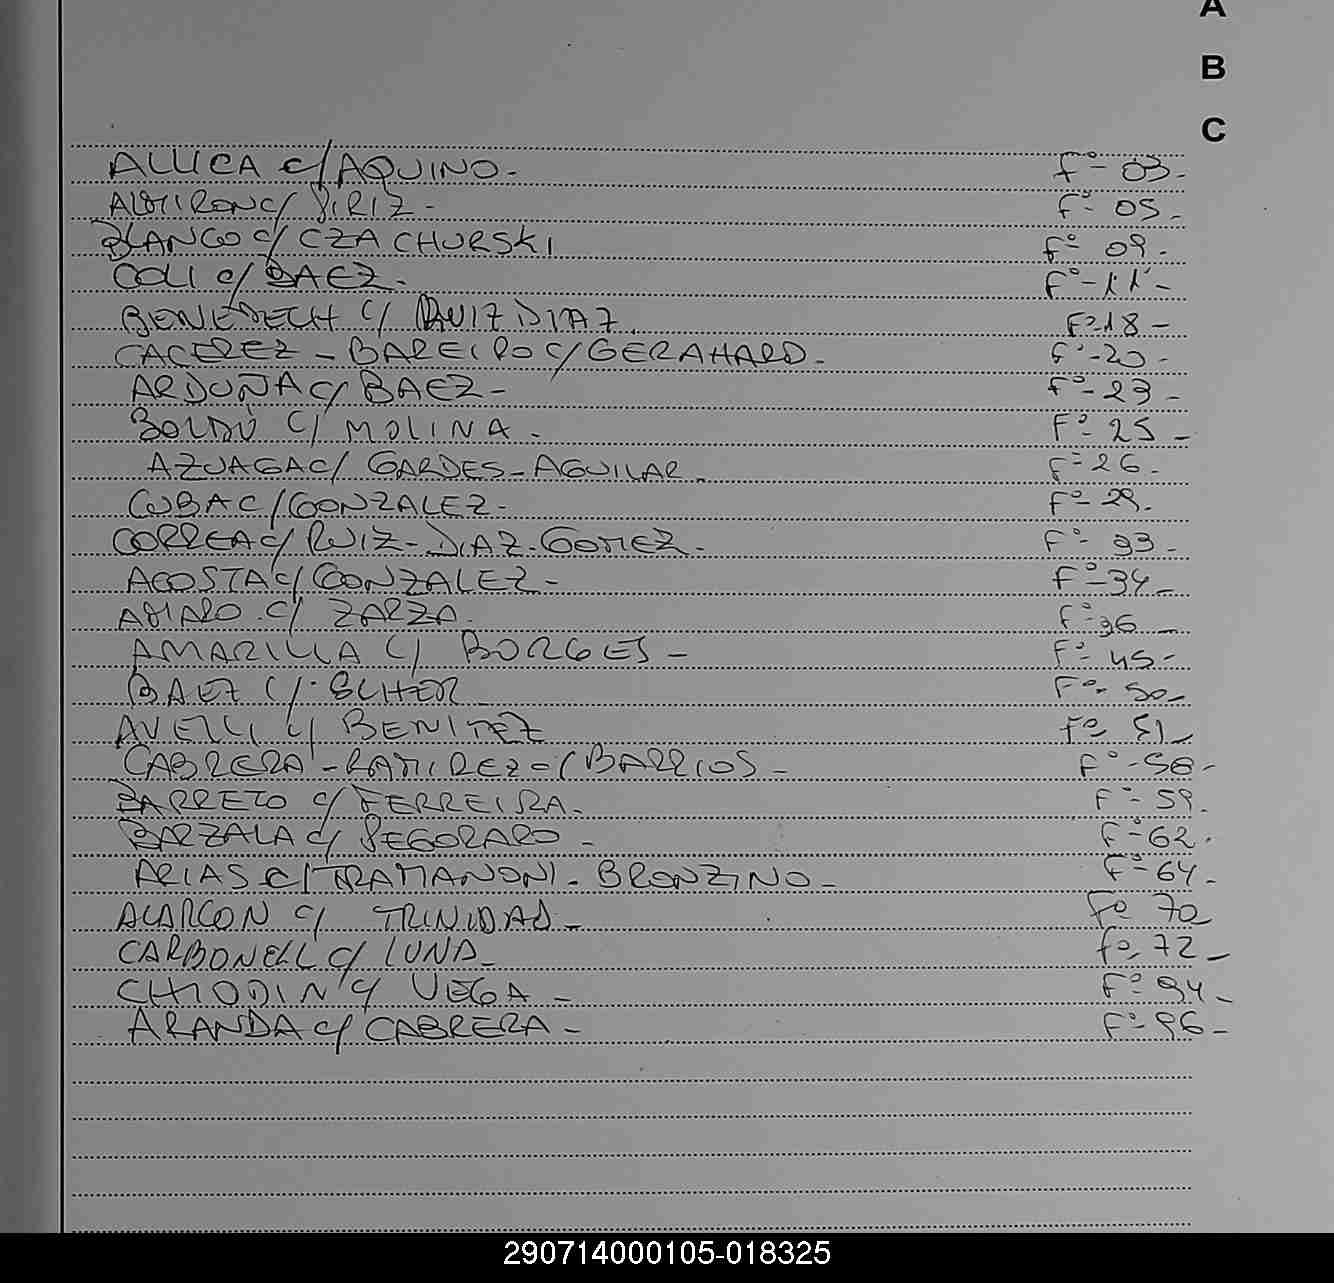 A
B
C
ALLICA c/ AQUINO. F°- 03-
ALMIRON c/ PIRIZ - F°- 05-
BLANCO c/ CZACHURSKI F°- 09.
COLI c/ BAEZ. F°- 11-
BENEDECH C/ RUIZ DIAZ. F°-18-
CACEREZ - BAREIRO c/ GERAHARD. F°-20-
ARDUÑA c/ BAEZ- F°-23-
BOLDÚ C/ MOLINA. F°- 25-
AZUAGA c/ GARDES-AGUILAR. F°-26-
CUBA C/ GONZALEZ- F°-29.
CORREA c/ RUIZ-DIAZ-GOMEZ. F°- 33-
ACOSTA c/ GONZALEZ- F°-34-
AMARO. C/ ZARZA. F°-36-
AMARILLA C/ BORGES- F°- 45-
BAEZ C/. F°- 50-
AVELLI C/ BENITEZ F° 51-
CABRERA-RAMIREZ-C/ BARRIOS- F°-58-
BARRETO c/ FERREIRA. F°- 59.
BARZALA c/ PEGORARO- F°-62.
ARIAS C/ TRAMANONI-BRONZINO- F°-64-
ALARCON C/ TRINIDAD- F° 70
CARBONELL C/ LUNA- F° 72-
CHIODIN C/ VEGA- F° 94-
ARANDA c/ CABRERA- F°-96-
290714000105-018325